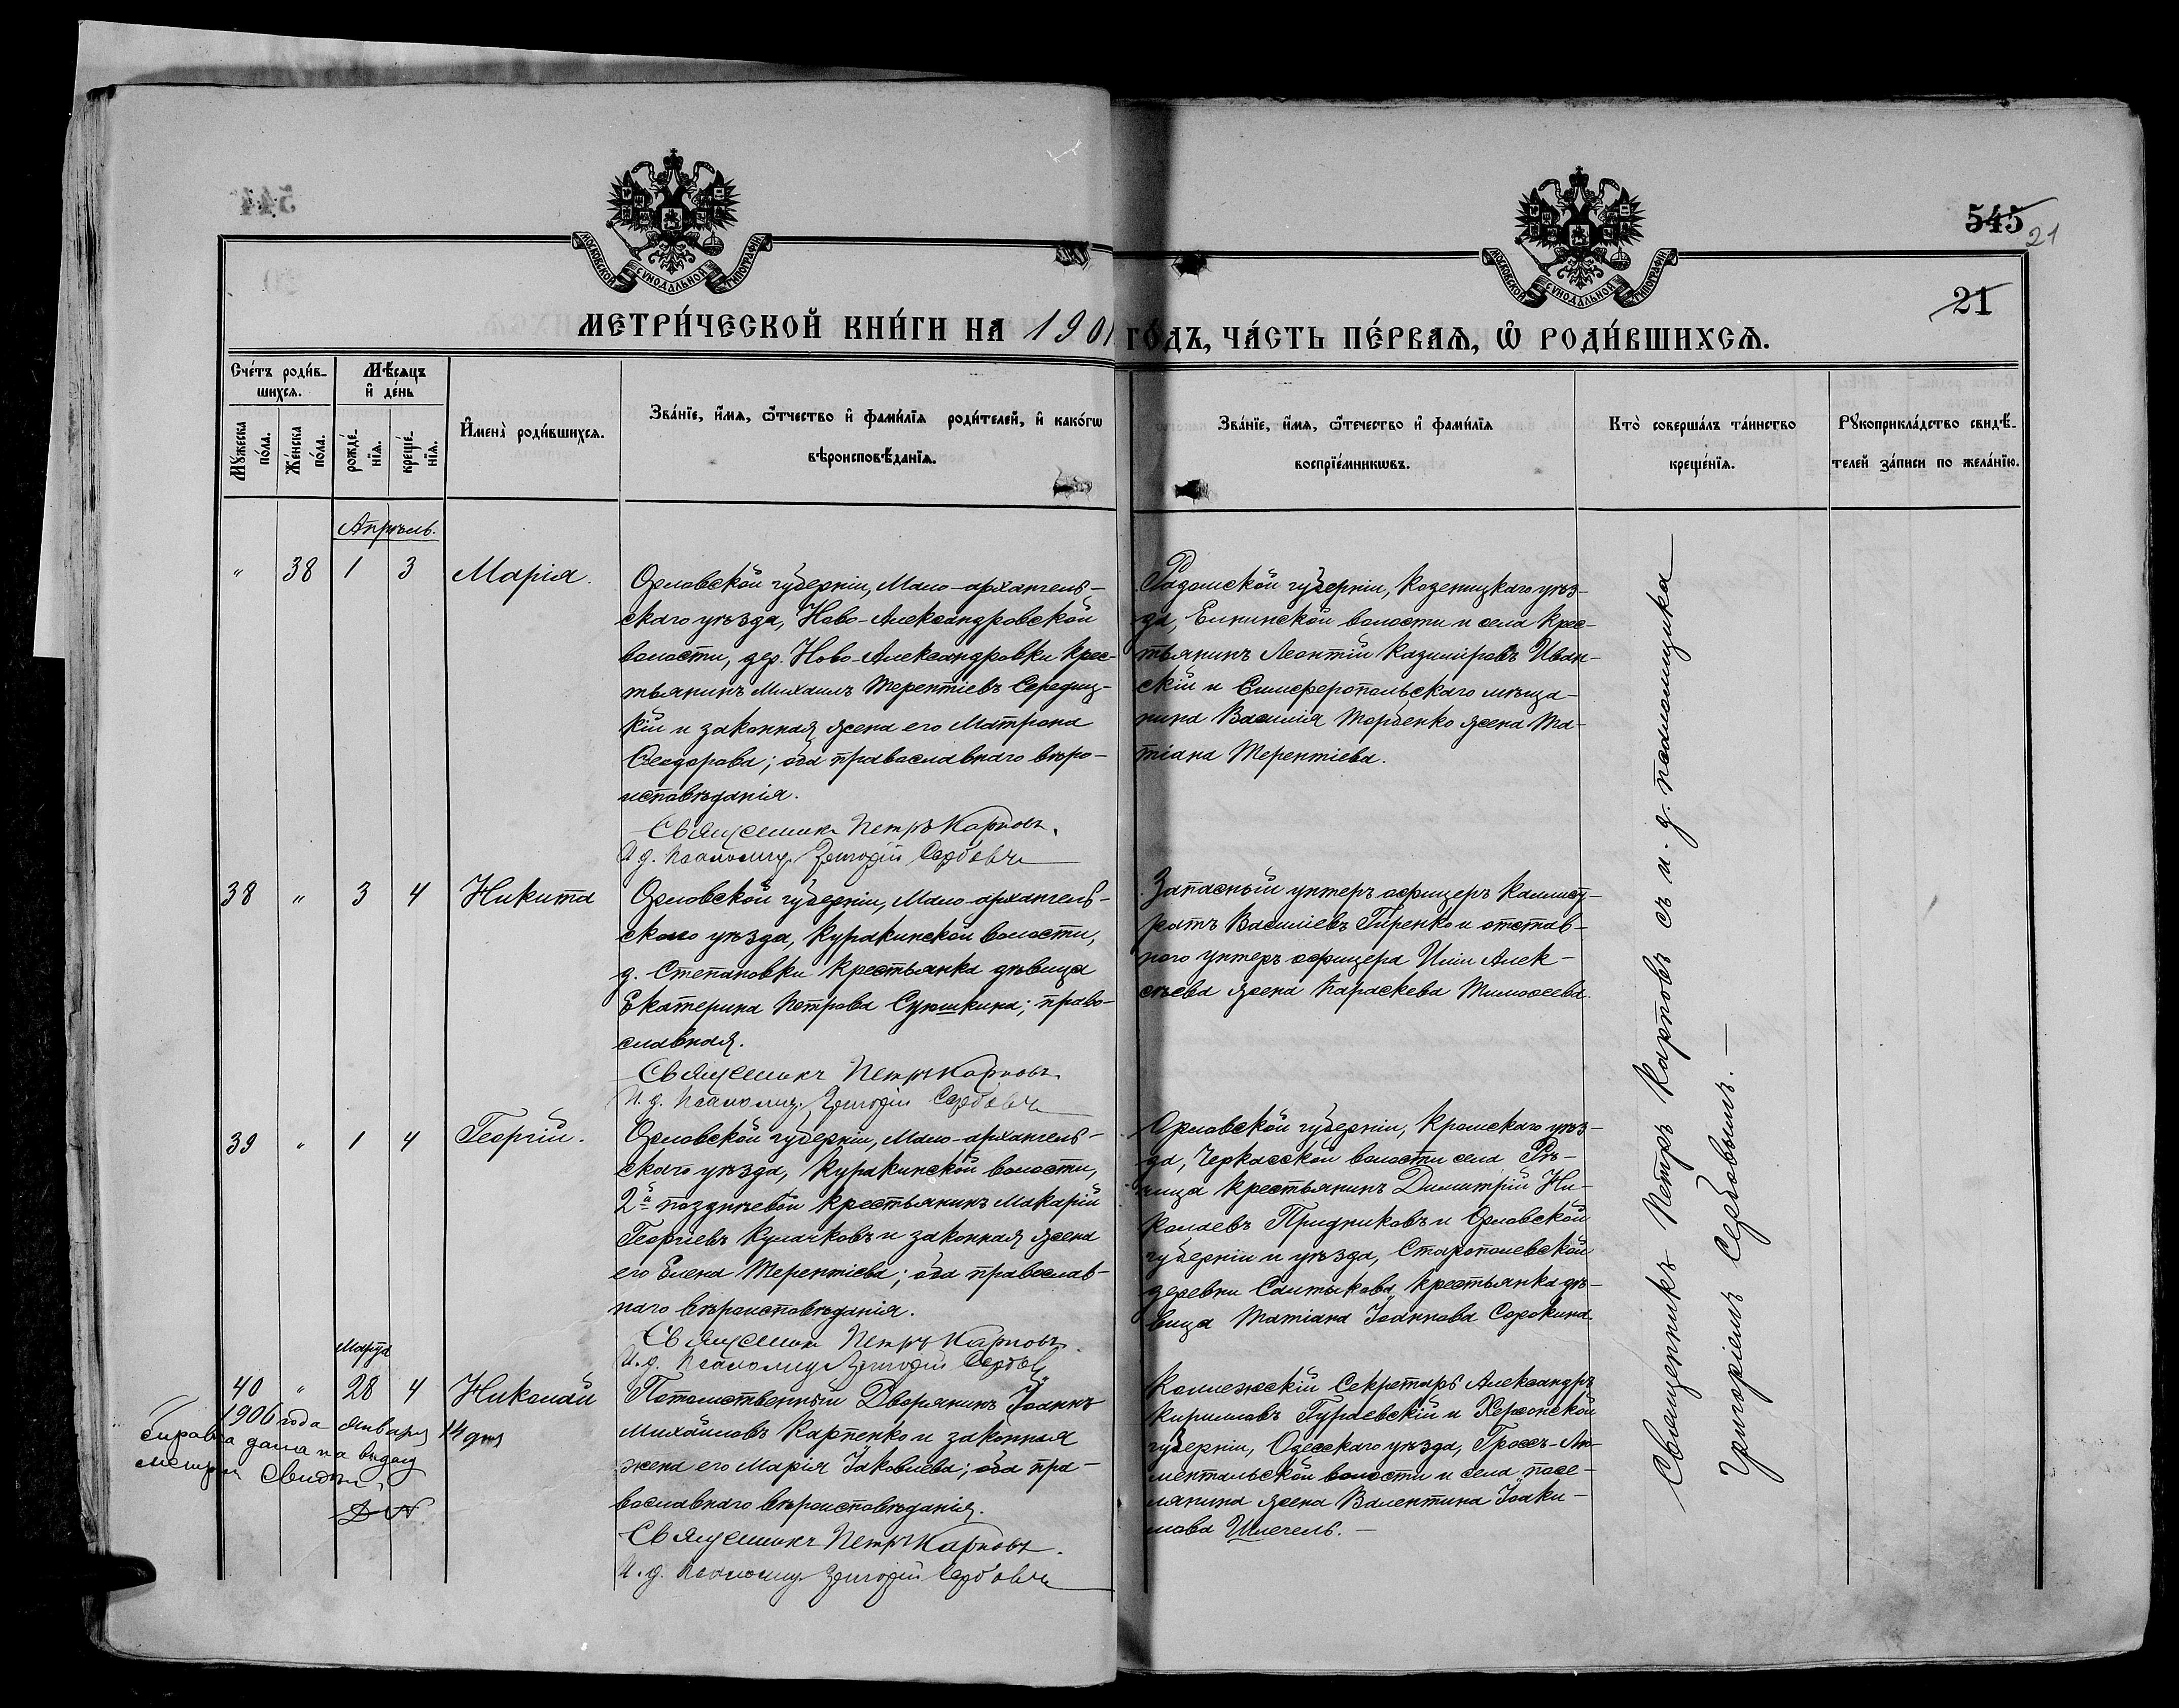 544
545
21
21
МОСКОВСКОЙ СУНОДАЛЬНОЙ ТИПОГРАФІИ
МОСКОВСКОЙ СУНОДАЛЬНОЙ ТИПОГРАФІИ
МЕТРИ́ЧЕСКОЙ КНИ́ГИ НА 1901 ГО́ДЪ, ЧА́СТЬ ПЕ́РВАѦ, Ѡ҆ РОДИ́ВШИХСѦ.
Сче́тъ роди́в-
шихсѧ.
Мѣ́сѧцъ
и҆ де́нь
Мꙋ́жеска
по́ла.
Же́нска
по́ла.
рожде́-
нїѧ.
креще́-
нїѧ.
И҆мена̀ роди́вшихсѧ.
Зва́нїе, и҆́мѧ, ѻ҆́тчество и҆ фами́лїѧ роди́телей, и҆ како́гѡ
вѣроисповѣ́данїѧ.
Зва́нїе, и҆́мѧ, ѻ҆те́чество и҆ фами́лїѧ
воспрїе́мникѡвъ.
Кто̀ соверша́лъ та́инство
креще́нїѧ.
Рꙋкоприкла́дство свидѣ́-
телей за́писи по жела́нїю.
Апрѣль.
" 38 1 3 Марія.
Орловской губерніи, Мало-архангель-
скаго уѣзда, Ново-Александровской
волости, дер. Ново-Александровки крес-
тьянинъ Михаилъ Терентіевъ Середиц-
кій и законная жена его Матрона
Ѳеодорова; оба православнаго вѣро-
исповѣданія.
Священникъ Петръ Карповъ.
И. д. псаломщ. Григорій Сербовъ
Радомской губерніи, Козеницкаго уѣз-
да, волости и села крес-
тьянинъ Леонтій Казиміровъ Иван-
скій и Симферопольскаго мѣща-
нина Василія Торбенко жена Та-
тіана Терентіева.
38 " 3 4 Никита
Орловской губерніи, Мало-архангель-
скаго уѣзда, Куракинской волости,
д. Степановки крестьянка дѣвица
Екатерина Петрова ; право-
славная.
Священникъ Петръ Карповъ.
И. д. псаломщ. Григорій Сербовъ
Запасный унтеръ офицеръ Каллист-
ратъ Василіевъ Гиренко и отстав-
ного унтеръ офицера Иліи Алек-
сѣева жена Параскева Тимоѳеева.
39 " 1 4 Георгій.
Орловской губерніи, Мало-архангель-
скаго уѣзда, Куракинской волости,
2й Позднѣевой крестьянинъ Макарій
Георгіевъ Кулачковъ и законная жена
его Елена Терентіева; оба православ-
наго вѣроисповѣданія.
Священникъ Петръ Карповъ.
И. д. псаломщ. Григорій Сербовъ
Орловской губерніи, Кромскаго уѣз-
да, Черкасской волости села Рѣ-
чица крестьянинъ Димитрій Ни-
колаевъ Придниковъ и Орловской
губерніи и уѣзда, Старопольевской
деревни Салтыкова крестьянка дѣ-
вица Татіана Іоаннова Сорокина.
Марта
40 " 28 4 Николай
Потомственный Дворянинъ Іоаннъ
Михайловъ Карпенко и законная
жена его Марія Іаковлева; оба пра-
вославнаго вѣроисповѣданія.
Священникъ Петръ Карповъ.
И. д. псаломщ. Григорій Сербовъ
Коллежскій Секретарь Александръ
Кирилловъ Гураевскій и Херсонской
губерніи, Одесскаго уѣзда, Гросъ-Ли-
ментальской волости и села посе-
лянина жена Валентина Іоаки-
мова Шлегель.
1906 года января 14 дня
справка дана на выдачу
метрич. свидѣт.
Священникъ Петръ Карповъ съ и. д. псаломщика
Григоріемъ Сербовымъ.